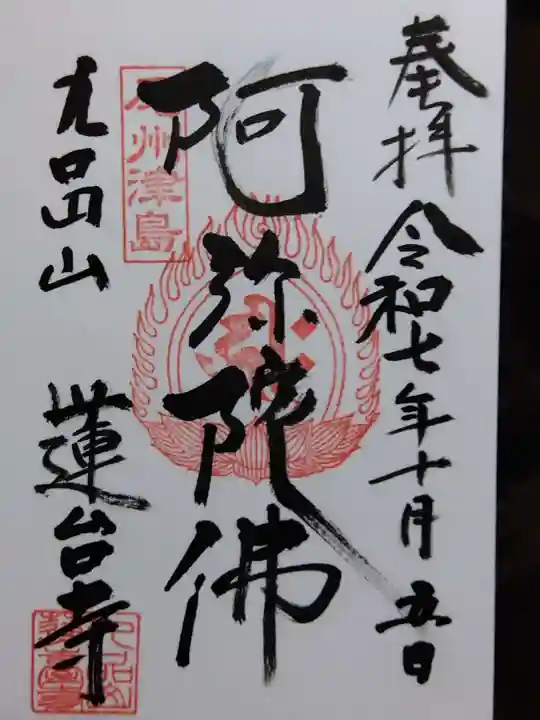 奉拝 令和七年十月五日
阿弥陀佛
尾州津島
九品山 蓮台寺